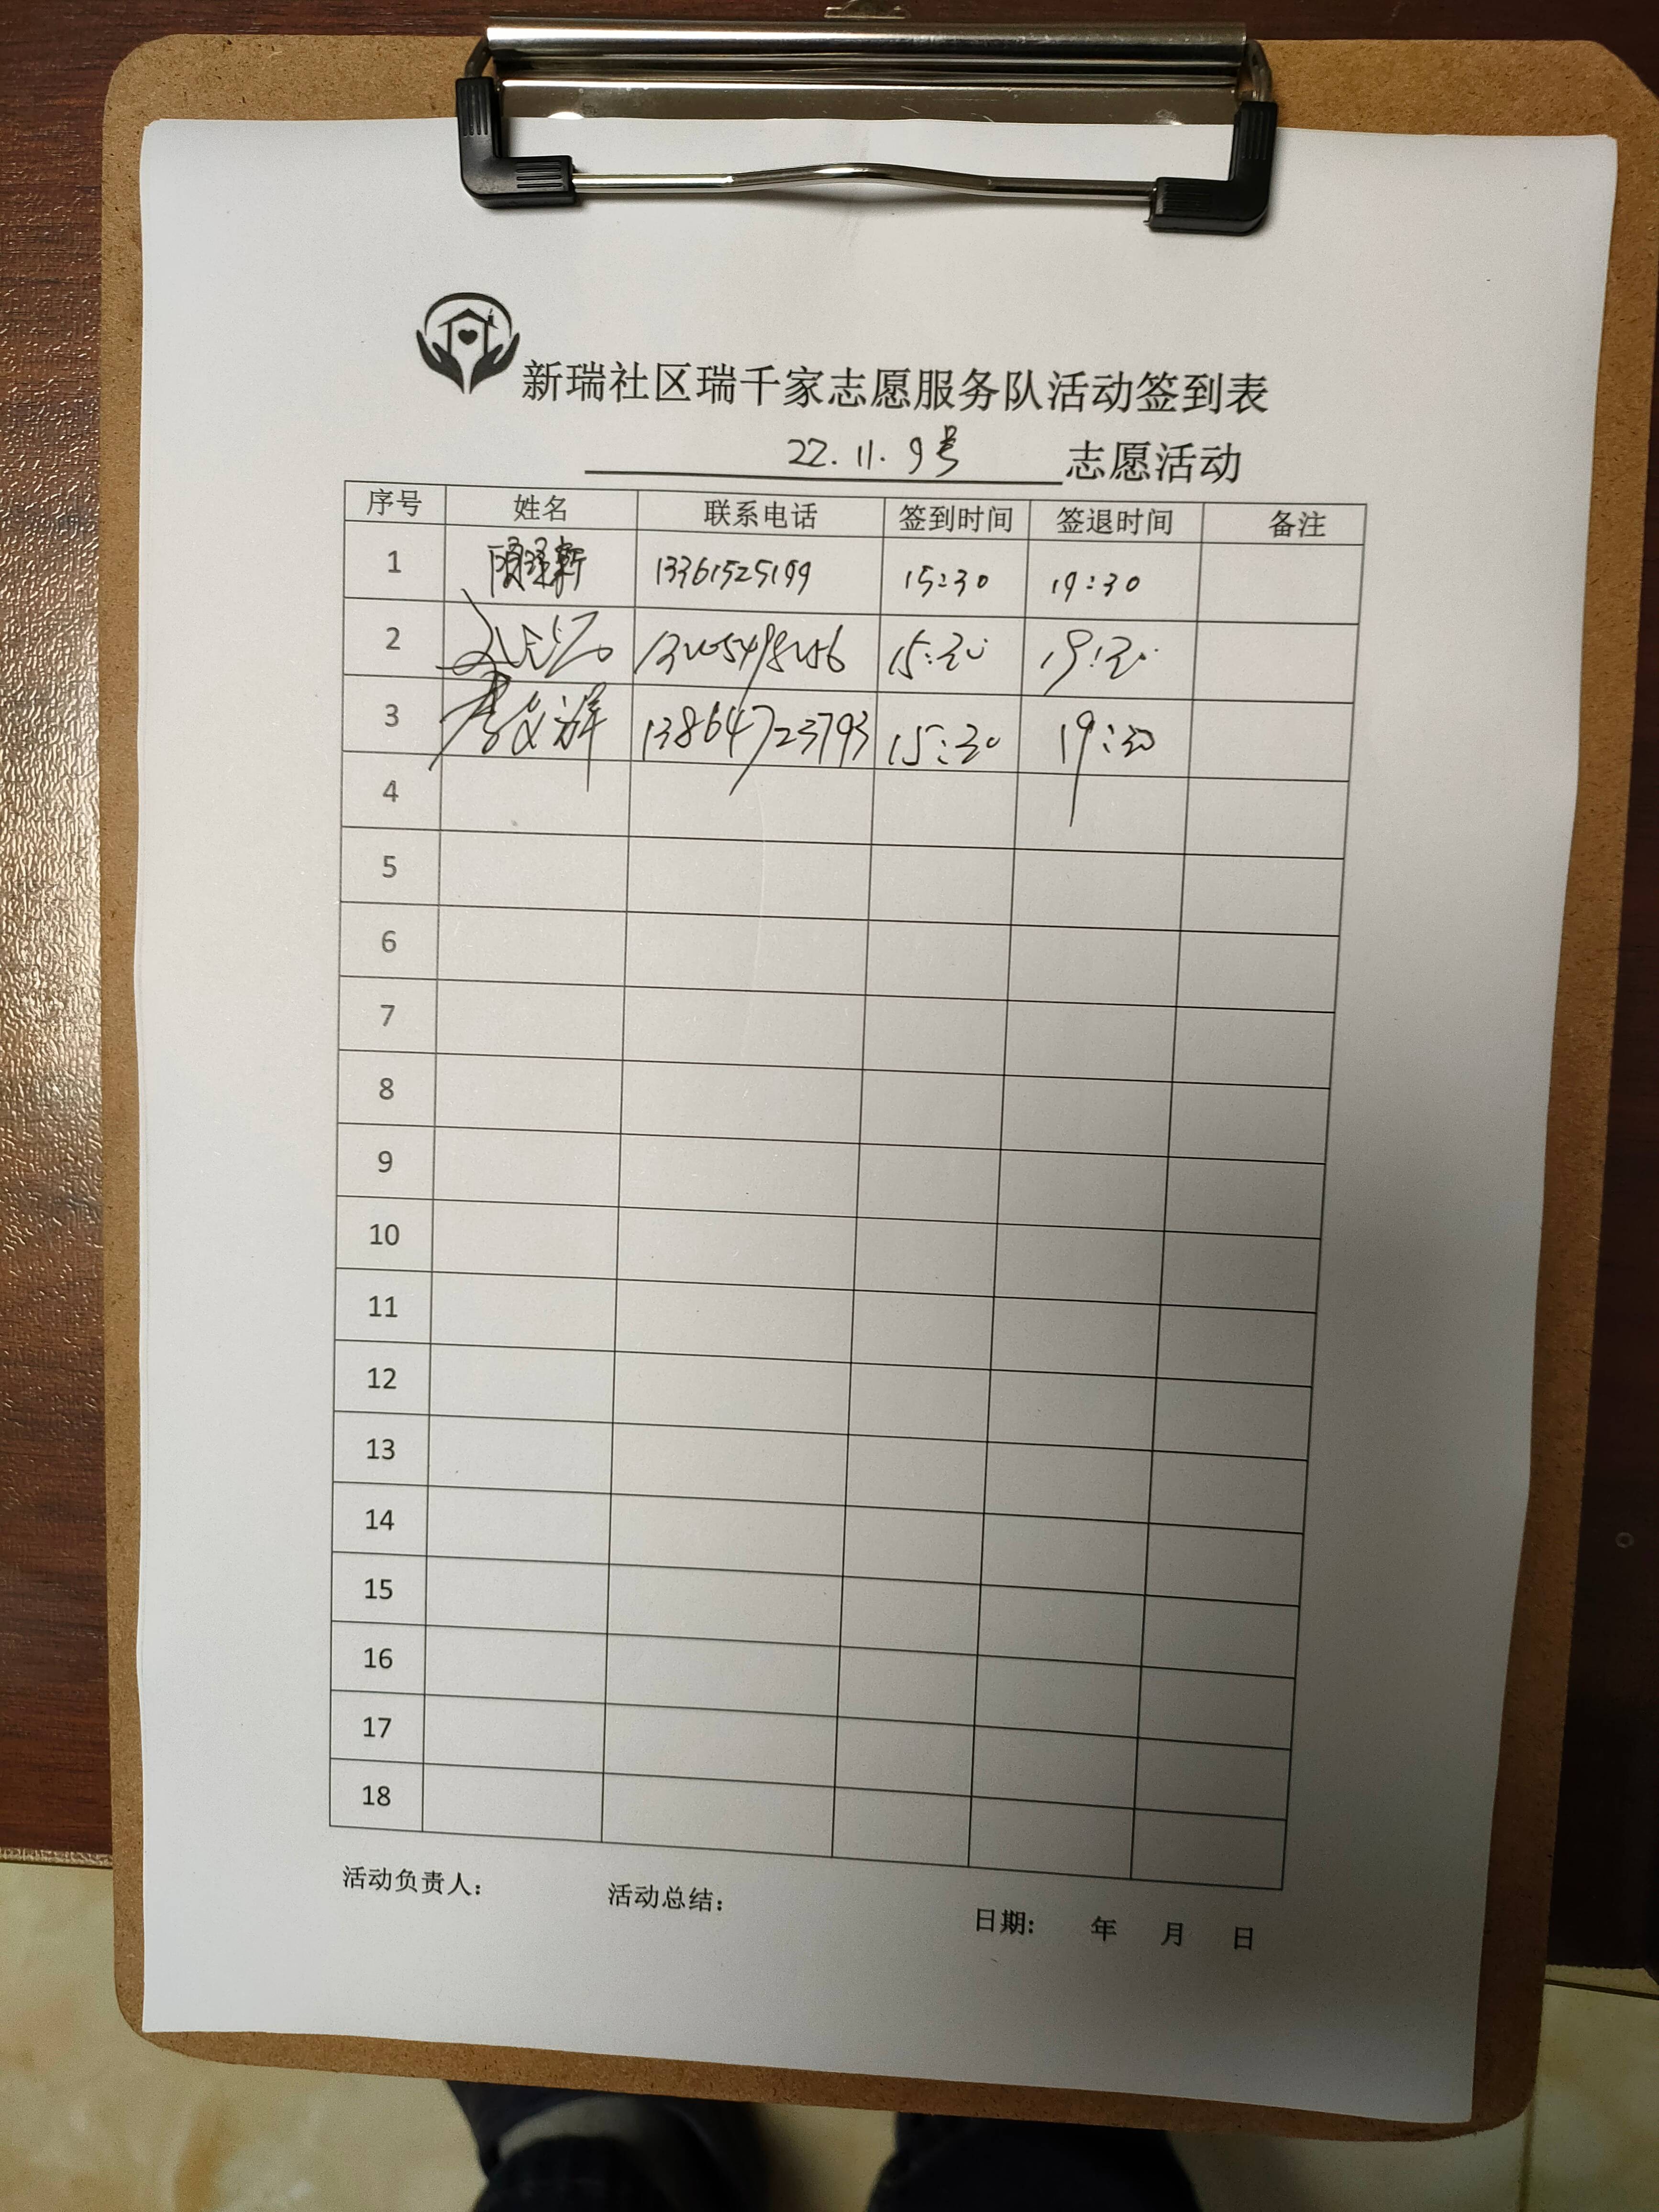 新瑞社区瑞千家志愿服务队活动签到表
22.11.9号 志愿活动
序号 姓名 联系电话 签到时间 签退时间 备注
1 13361525199 15:30 19:30
2 15:30 19:30
3 13864723793 15:30 19:30
4
5
6
7
8
9
10
11
12
13
14
15
16
17
18
活动负责人： 活动总结： 日期： 年 月 日